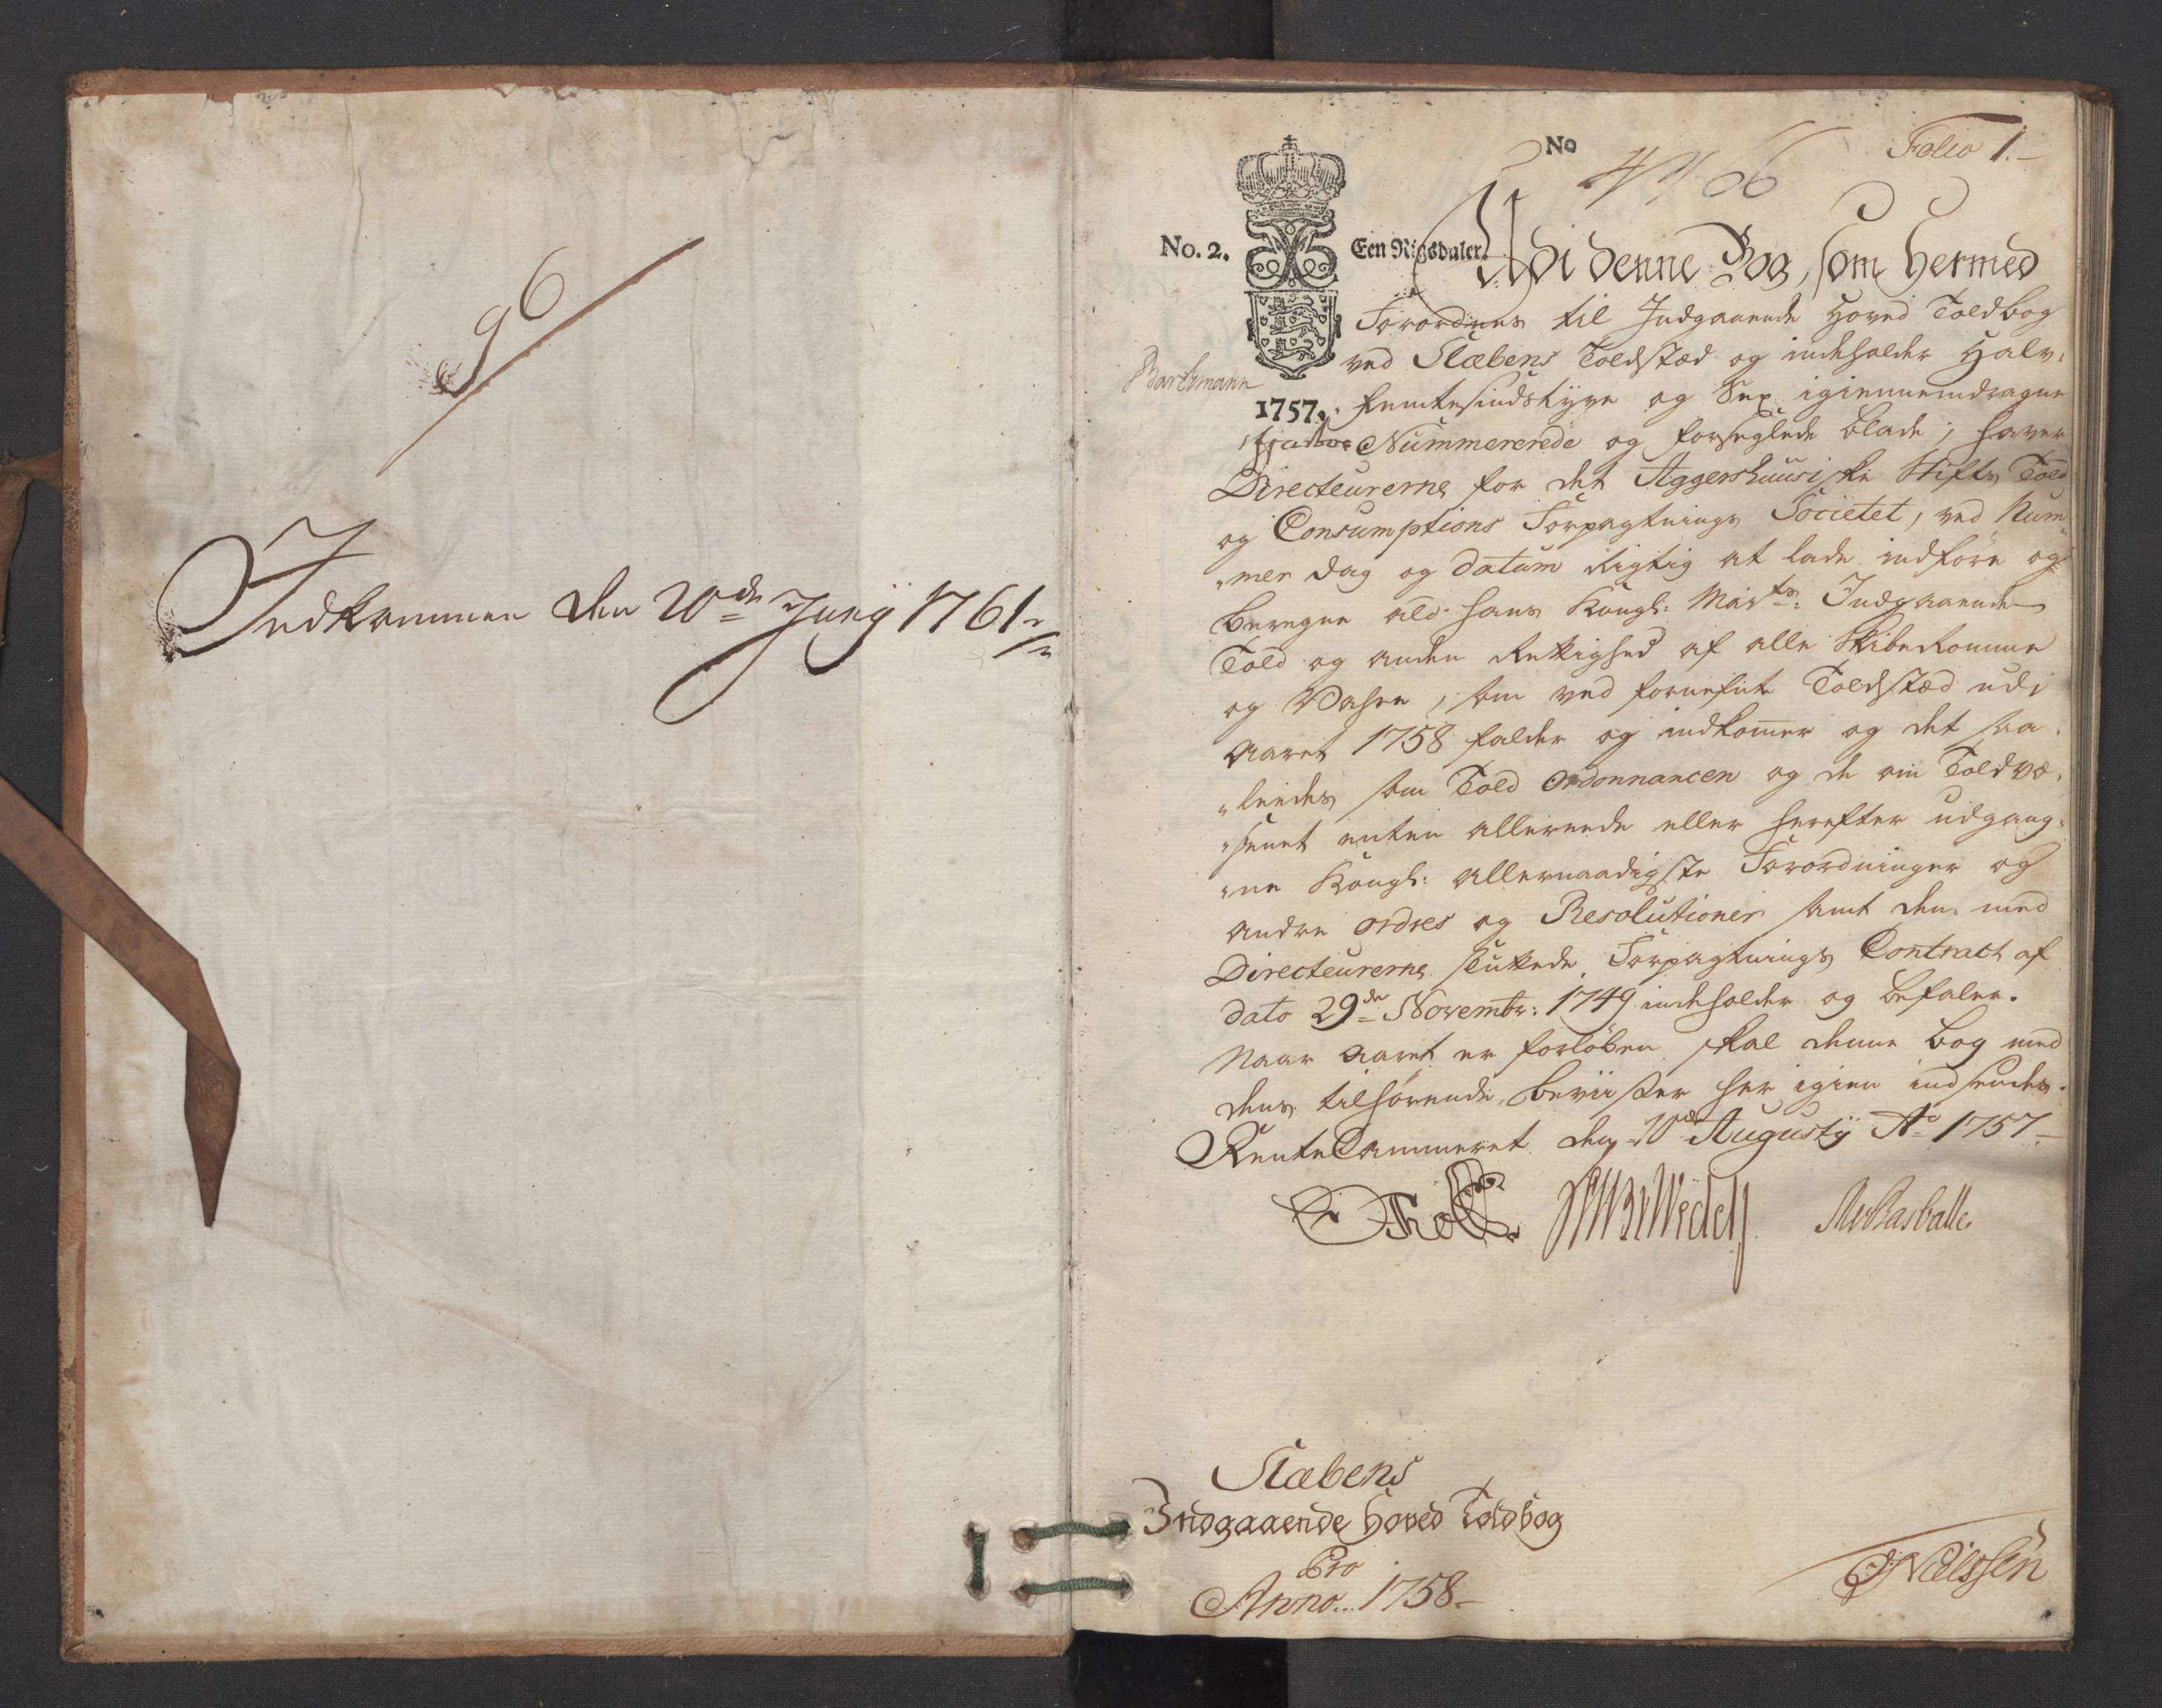 96
Indkommen den 20de Junÿ 1761
No
4766
Folio 1.
No. 2.
Een Rigsdaler
Udi denne Bog, som hermed
Forordnes til Indgaaende Hoved Toldbog
ved Slæbens Toldstæd og indeholder Halv-
Barthmann
1757.
femtesindstyve og Sex igiennemdragne
Nummererede og forseglede blade, haver
Directeurerne for det Aggershuusiske Stifts Told
og Consumptions Forpagtnings Societet, ved Num-
"mer dag og datum Rigtig at lade indføre og
beregne ald hans Kongl: Maÿts: Indgaaende
Told og anden Rettighed af alle Skibe komme
og Vahre, som ved fornefnte Toldstæd udi
Aaret 1758 falder og indkom̅er og det saa-
"leedes som Told Ordonnancen og de om Toldvæ-
"senet enten allereede eller herefter udgang-
"ne Kongl: Allernaadigste Forordninger og
andre ordres og Resolutioner samt den med
Directeurerne sluttede Forpagtnings Contract af
dato 29de Novembr: 1749 indeholder og befaler.
Naar Aaret er forløben skal denne bog med
dens tilhørende beviister her igien indsendes.
RenteCammeret den 10de Augustÿ Ao 1757
Holst
Slæbens
Indgaaende Hoved Toldbog
Pro
Anno 1758
Nielssen